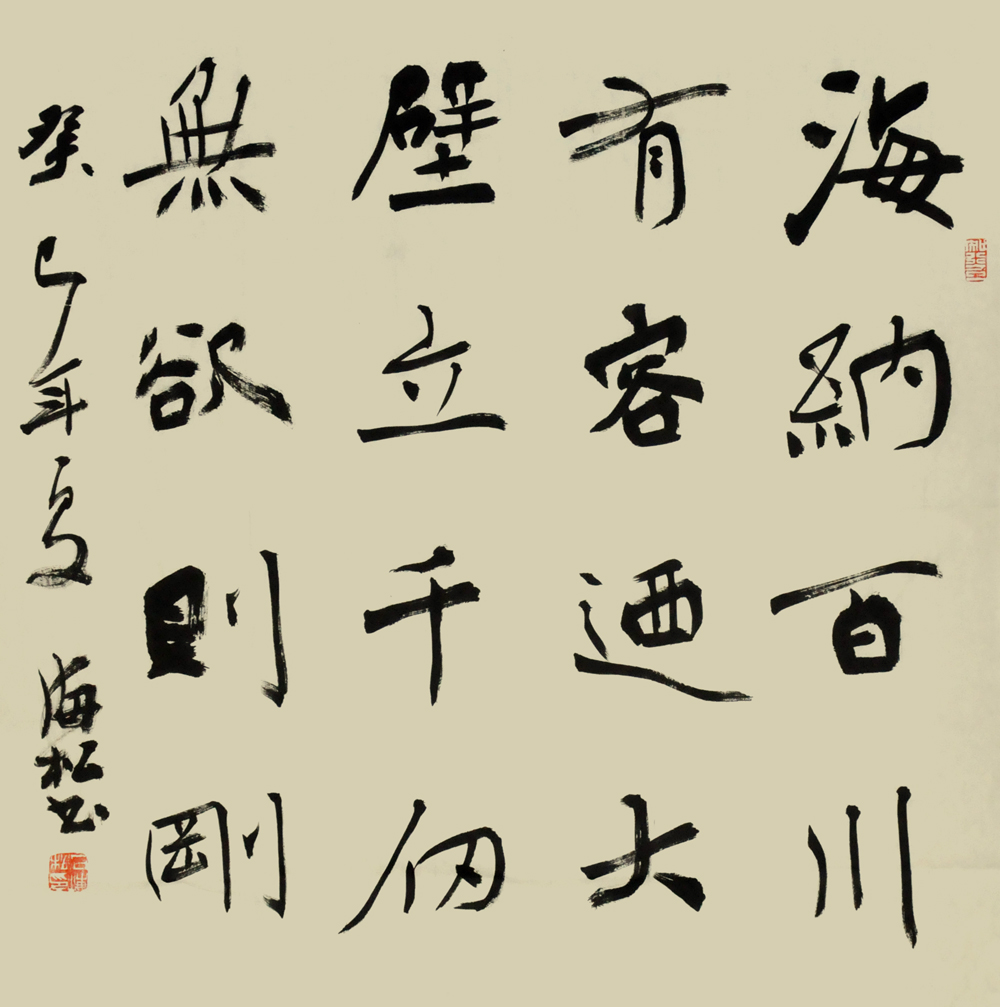 海納百川
有容迺大
壁立千仞
無欲則剛
癸巳年夏 海松书